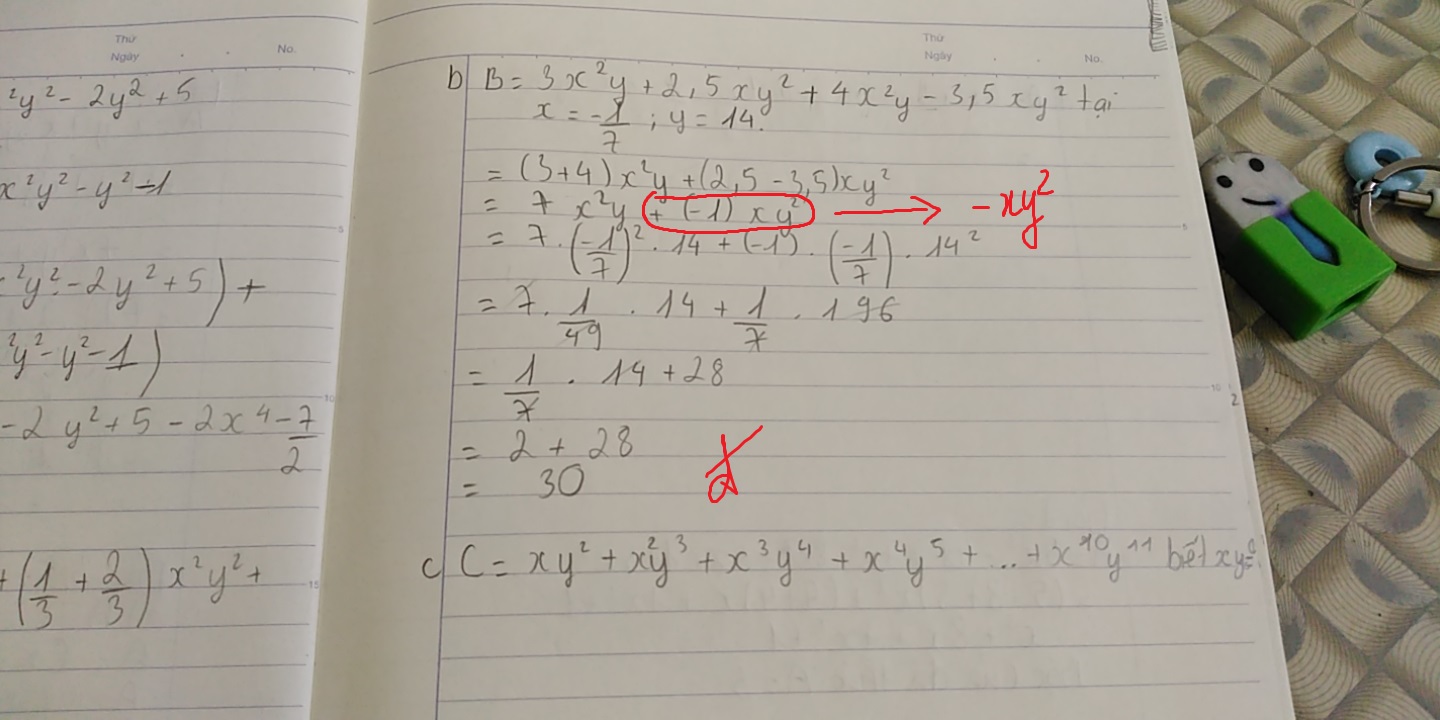 Thứ
Ngày . . No.
²y² - 2y² + 5
x²y² - y² - 1
²y² - 2y² + 5) +
²y² - y² - 1)
- 2y² + 5 - 2x⁴ - 7/2
+ (1/3 + 2/3) x²y² +
Thứ
Ngày . . No.
b) B = 3x²y + 2,5xy² + 4x²y - 3,5xy² tại
x = -1/7 ; y = 14.
= (3+4)x²y + (2,5 - 3,5)xy²
= 7x²y + (-1)xy² → -xy²
= 7 . (-1/7)² . 14 + (-1) . (-1/7) . 14²
= 7 . 1/49 . 14 + 1/7 . 196
= 1/7 . 14 + 28
= 2 + 28
= 30
c) C = xy² + x²y³ + x³y⁴ + x⁴y⁵ + ... + x¹⁰y¹¹ biết xy =